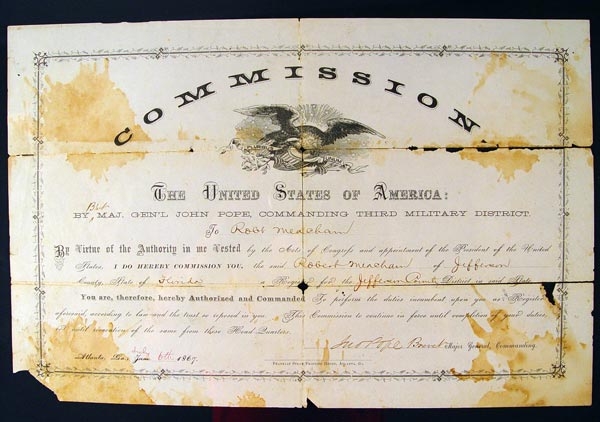 COMMISSION.
THE UNITED STATES OF AMERICA:
Bvt
BY, MAJ. GEN'L JOHN POPE, COMMANDING THIRD MILITARY DISTRICT.
To Robt Meacham
By Virtue of the Authority in me Vested by the Acts of Congress and appointment of the President of the United
States, I DO HEREBY COMMISSION YOU, the said Robert Meacham of Jefferson
County, State of Florida a Register for the Jefferson County District in said State.
You are, therefore, hereby Authorized and Commanded To perform the duties incumbent upon you as Register
aforesaid, according to law and the trust so reposed in you. This Commission to continue in force until completion of said duties,
or until revocation of the same from these Head Quarters.
Jno Pope Brevet Major General, Commanding.
Atlanta, Geo., July 6th 1867.